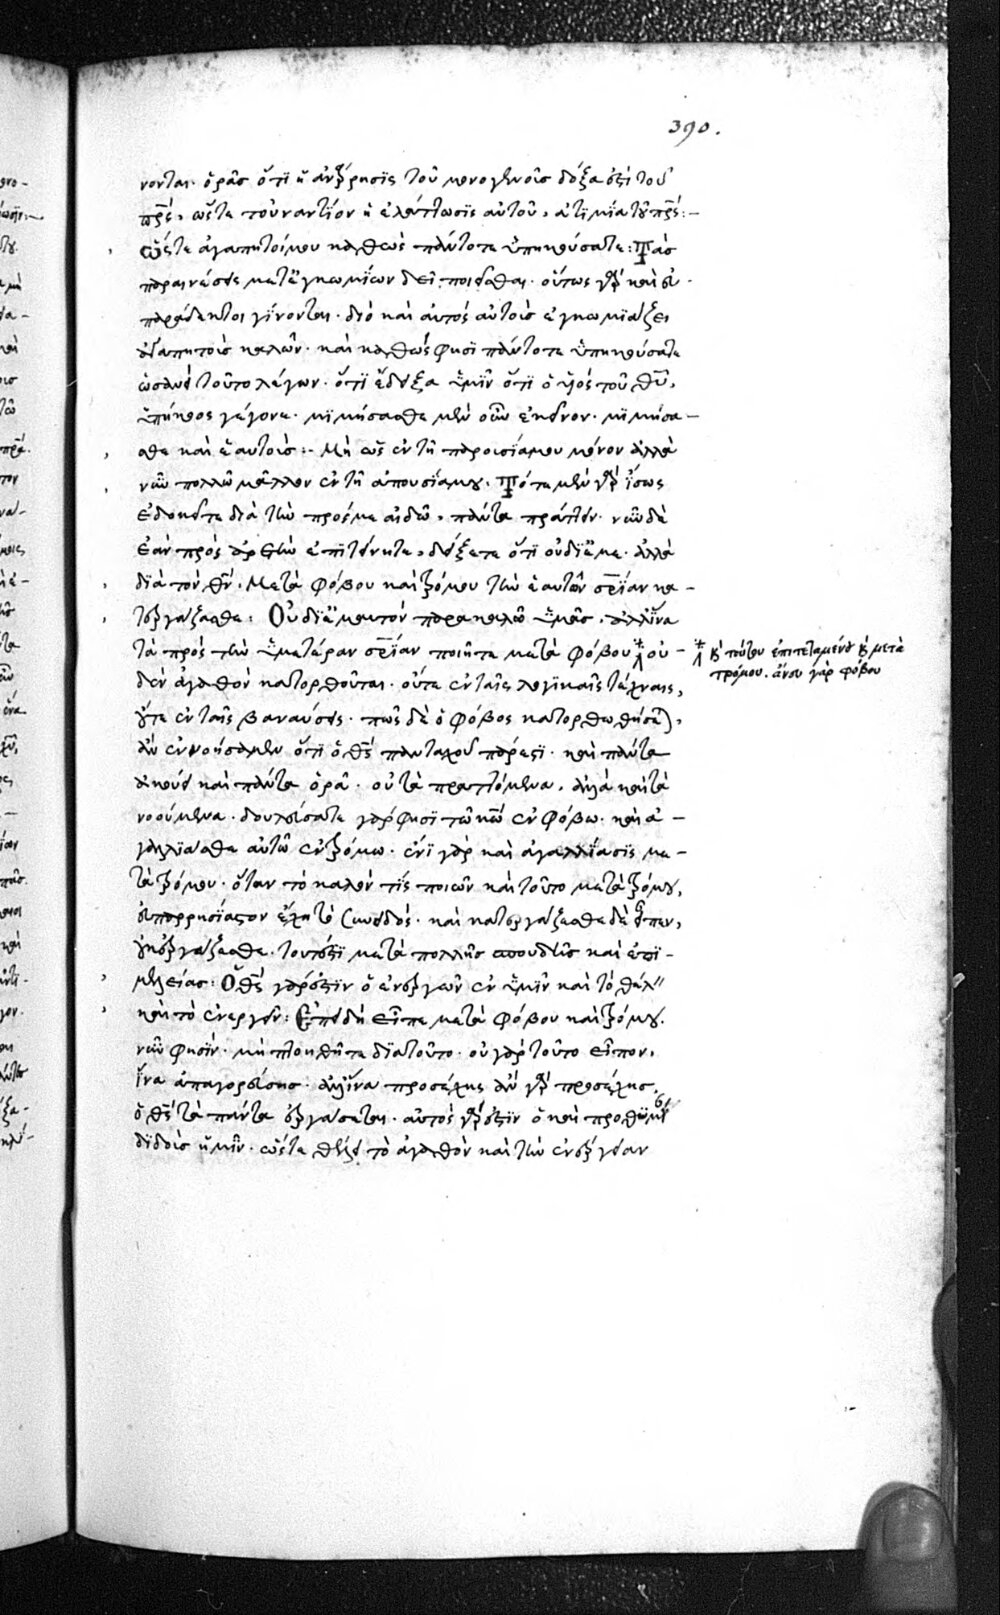 390.
νονται· ὁρᾶς ὅτι ἡ ἀνάρρησις τοῦ μονογενοῦς δόξα ἐστὶ τοῦ
πρς, ὥστε τοὐναντίον ἡ ἐλάττωσις αὐτοῦ, ἀτιμία τοῦ πρς:—
Ὥστε ἀγαπητοί μου καθὼς πάντοτε ὑπηκούσατε: Τὰς
παραινέσεις μετ' ἐγκωμίων δεῖ ποιεῖσθαι· οὕτως γὰρ καὶ εὐ-
παράδεκτοι γίνονται· διὸ καὶ αὐτὸς αὐτοὺς ἐγκωμιάζει
ἀγαπητοὺς καλῶν· καὶ καθώς φησι πάντοτε ὑπηκούσατε
ὡσανεὶ τοῦτο λέγων· ὅτι ἔδειξα ὑμῖν ὅτι ὁ υἱὸς τοῦ θυ,
ὑπήκοος γέγονε· μιμήσασθε μὲν οὖν ἐκεῖνον· μιμήσα—
σθε καὶ ἑαυτούς:— Μὴ ὡς ἐν τῇ παρουσίᾳ μου μόνον ἀλλὰ
νῦν πολλῷ μᾶλλον ἐν τῇ ἀπουσίᾳ μου. Τότε μὲν γὰρ ἴσως
ἐδοκεῖτε διὰ τὴν πρός με αἰδῶ, πάντα πράττειν· νῦν δὲ
ἐὰν πρὸς ἀρετὴν ἐπιτείνητε, δείξετε ὅτι οὐ δι' ἐμέ· ἀλλὰ
διὰ τὸν θν. Μετὰ φόβου καὶ τρόμου τὴν ἑαυτῶν σρίαν κα—
τεργάζεσθε: Οὐ δι' ἐμαυτὸν παρακαλῶ ὑμᾶς, ἀλλ' ἵνα
τὰ πρὸς τὴν ὑμετέραν σρίαν ποιῆτε μετὰ φόβου οὐ—
κ τούτου ἐπιτεταμένου κ μετὰ
τρόμου. ἄνευ γὰρ φόβου
δὲν ἀγαθὸν κατορθοῦται· οὔτε ἐν ταῖς λογικαῖς τέχναις,
οὔτε ἐν ταῖς βαναύσοις· πῶς δὲ ὁ φόβος κατορθωθήσεται,
ἂν ἐννοήσωμεν ὅτι ὁ θς πανταχοῦ πάρεστι· καὶ πάντα
ἀκούει καὶ πάντα ὁρᾷ· οὐ τὰ πραττόμενα, ἀλλὰ καὶ τὰ
νοούμενα· δουλεύσατε γάρ φησι τῷ κω ἐν φόβῳ· καὶ ἀ—
γαλλιᾶσθε αὐτῷ ἐν τρόμῳ· ἔνι γὰρ καὶ ἀγαλλίασις με—
τὰ τρόμου· ὅταν τὸ καλὸν τὶς ποιῶν καὶ τοῦτο μετὰ τρόμου,
εὐπαρρησίαστον ἔχῃ τὸ συνειδός· καὶ κατεργάζεσθε δὲ εἶπεν,
οὐκ ἐργάζεσθε· τουτέστι μετὰ πολλῆς σπουδῆς καὶ ἐπι—
μελείας: Ὁ θς γάρ ἐστιν ὁ ἐνεργῶν ἐν ὑμῖν καὶ τὸ θέλειν
καὶ τὸ ἐνεργεῖν: Ἐπειδὴ εἶπε μετὰ φόβου καὶ τρόμου.
νῦν φησίν· μὴ πτοηθῆτε διὰ τοῦτο· οὐ γὰρ τοῦτο εἶπον,
ἵνα ἀπαγορεύσῃς· ἀλλ' ἵνα προσέχῃς ἂν γὰρ προσέχῃς,
ὁ θς τὰ πάντα ἐργάσεται· αὐτὸς γάρ ἐστιν ὁ καὶ προθυμίαν
διδοὺς ἡμῖν· ὥστε θέλειν τὸ ἀγαθὸν καὶ τὴν ἐνέργειαν